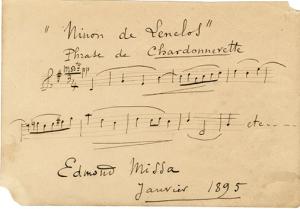 "Ninon de Lenclos"
Phrase de Chardonnerette
pp
etc
Edmond Missa
Janvier 1895